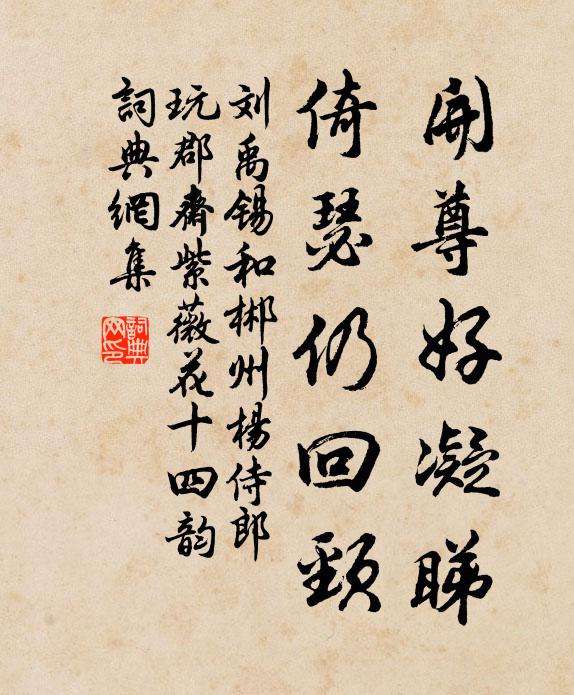 開尊好凝睇
倚瑟仍回頸
刘禹锡和郴州楊侍郎
玩郡齋紫薇花十四韵
詞典網集
詞典
网印